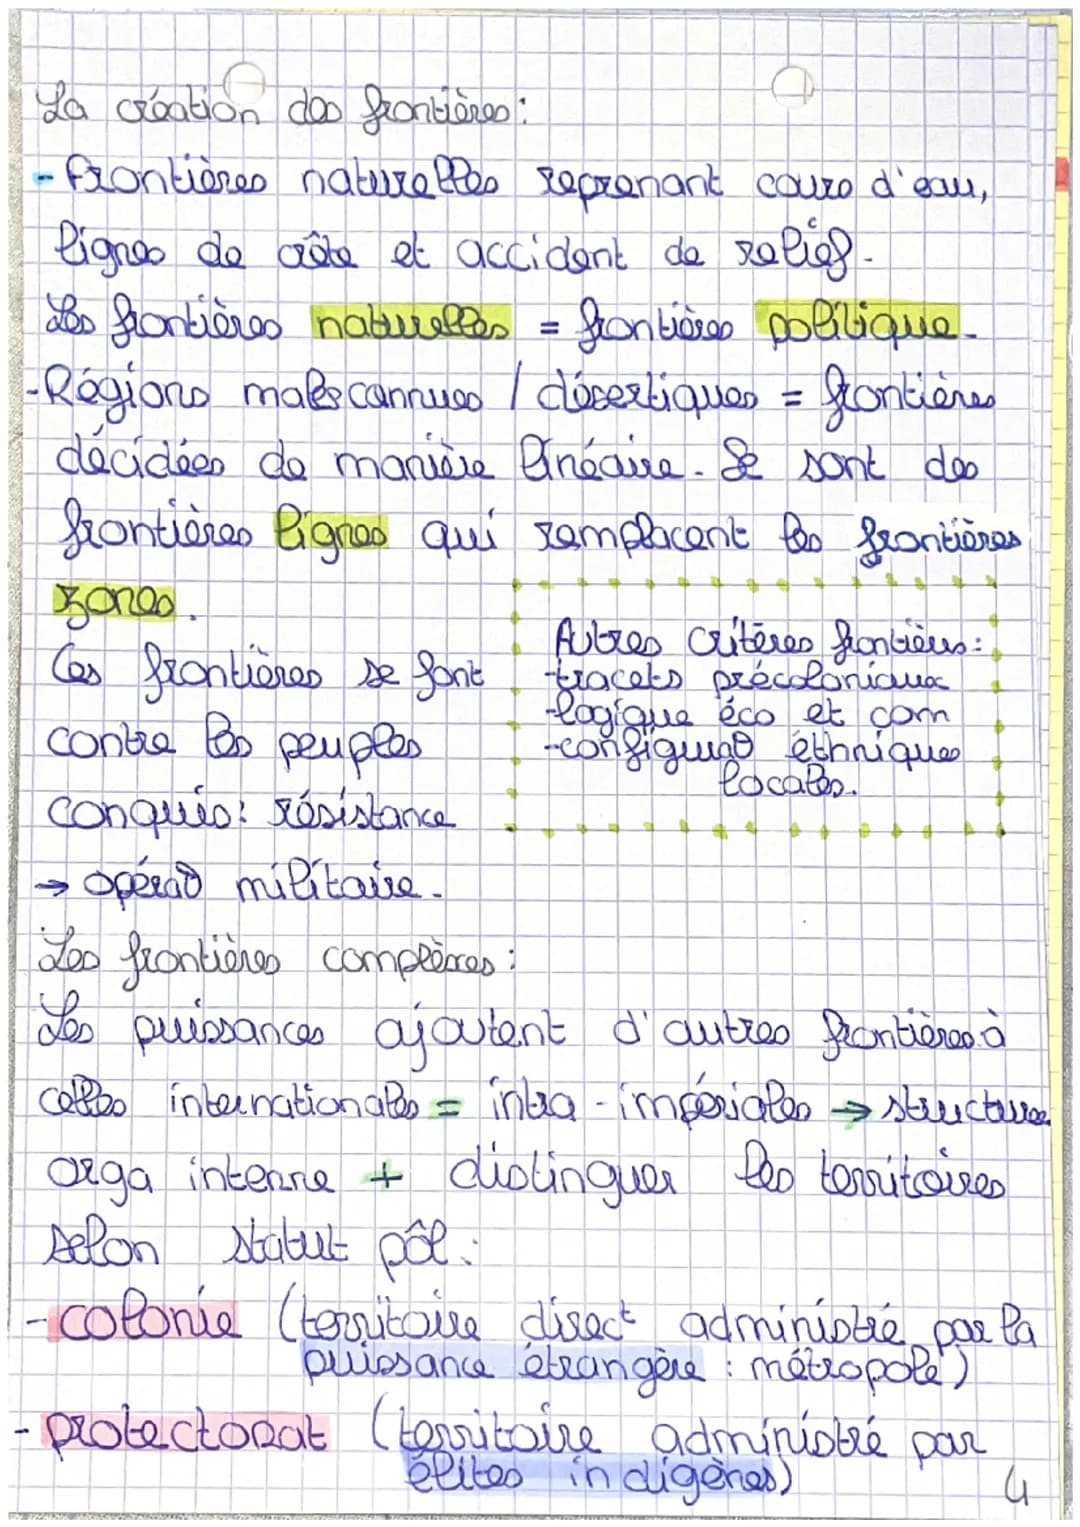 La création des frontières :
- Frontières naturelles reprenant cours d'eau,
lignes de crête et accident de relief.
Les frontières naturelles = frontières politique.
- Régions males connues / désertiques = frontières
décidées de manière linéaire. Se sont des
frontières lignes qui remplacent les frontières
zones.
Ces frontières se font
contre les peuples
conquis : résistance
→ opéra° militaire.
Autres critères frontières :
- tracets précoloniaux
- logique éco et com
- configura° éthniques
locales.
Les frontières complèxes :
Les puissances ajoutent d'autres frontières à
celles internationales = intra-impériales → structure
orga interne + distinguer les territoires
selon statut pôl :
- colonie (territoire direct administré par la
puissance étrangère : métropole)
- protectorat (territoire administré par
élites indigènes)
4